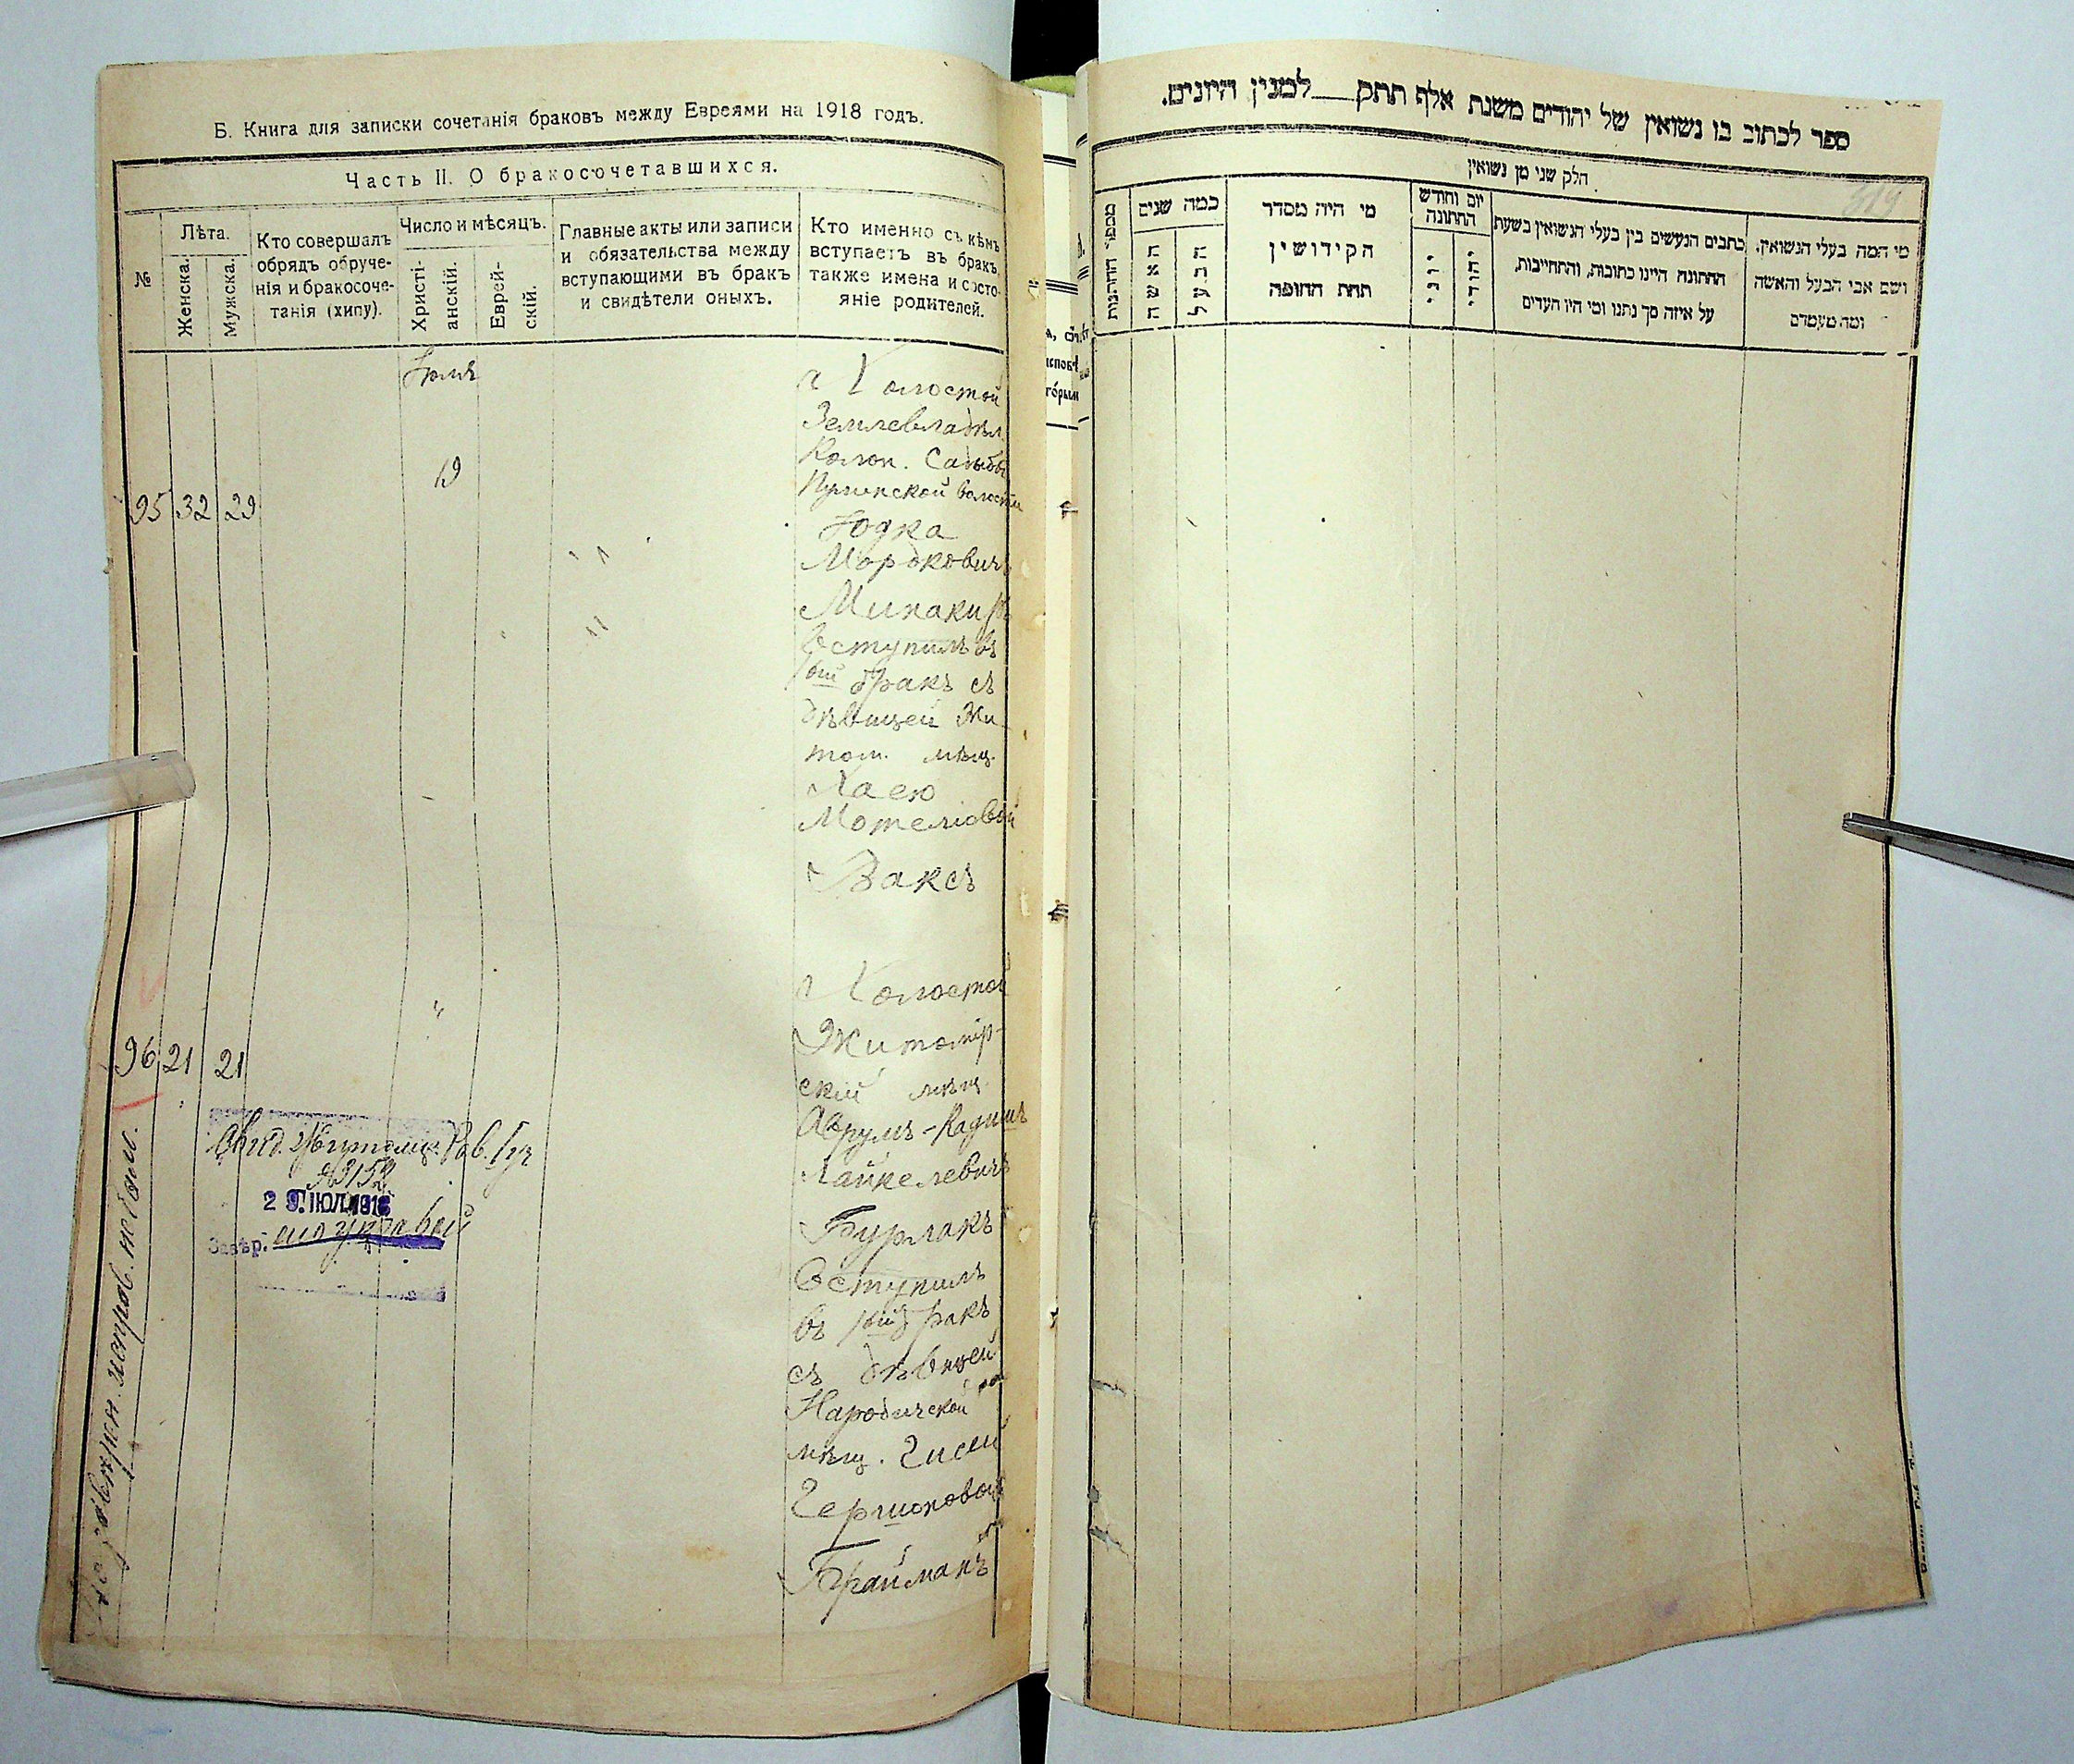 Б. Книга для записки сочетанія браковъ между Евреями на 1918 годъ.
Часть II. О бракосочетавшихся.
№
Лѣта.
Женска.
Мужска.
Кто совершалъ
обрядъ обруче-
нія и бракосоче-
танія (хипу).
Число и мѣсяцъ.
Христі-
анскій.
Еврей-
скій.
Главные акты или записи
и обязательства между
вступающими въ бракъ
и свидѣтели оныхъ.
Кто именно съ кѣмъ
вступаетъ въ бракъ,
также имена и состо-
яніе родителей.
95 32 29
Іюля
19
Холостой
Землевладѣл.
Колон.
волости
Юдка
Мордковичъ
Вступилъ въ
1ый бракъ съ
дѣвицей Жи-
том. мѣщ.
Хаею
Мотелiовой
Ваксъ
96 21 21
"
Холостой
Житомір-
скій мѣщ.
Аврумъ-Кадишъ
Лайкелевичъ
Бурлакъ
Вступилъ
въ 1ый бракъ
съ дѣвицей
Народичской
мѣщ. Гисей
Гершоновой
Брайманъ
№ 9152
2 9. ІЮЛ. 1918
Завѣр.
ספר לכתוב בו נשואין של יהודים משנת אלף תתק___למנין היונים.
חלק שני מן נשואין
319
מספר החתונות
כמה שנים
האשה
הבעל
מי היה מסדר
הקידושין
תחת החופה
יום וחודש
החתונה
יוני
יהודי
כתבים הנעשים בין בעלי הנשואין בשעת
החתונה היינו כתובות, והתחייבות,
על איזה סך נתנו ומי היו העדים
מי המה בעלי הנשואין,
ושם אבי הבעל והאשה
ומה מעמדם